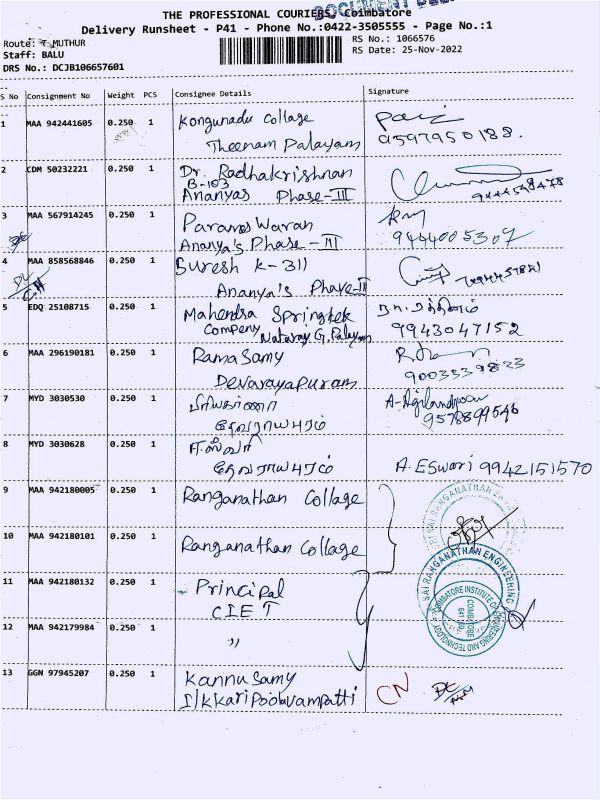 THE PROFESSIONAL COURIERS, Coimbatore
Delivery Runsheet - P41 - Phone No.:0422-3505555 - Page No.:1
Route: T MUTHUR
RS No.: 1066576
Staff: BALU
RS Date: 25-Nov-2022
DRS No.: DCJB106657601
S No Consignment No Weight PCS Consignee Details Signature
1 MAA 942441605 0.250 1 Kongunadu Collage
Theenam Palayam 9597950188.
2 CDM 50232221 0.250 1 Dr. Radhakrishnan
B-103
Ananyas Phase-III
3 MAA 567914245 0.250 1 Parames Waran
Ananya's Phase-III 9444005307
4 MAA 858568846 0.250 1 Suresh K-311
Ananya's Phase-II
5 EDQ 25108715 0.250 1 Mahendra Springtek
Compeny Nataraj G. Palayam 9943047152
6 MAA 296190181 0.250 1 Rama Samy
Devarayapuram 9003339833
7 MYD 3030530 0.250 1
தேவராயபுரம் 9578899546
8 MYD 3030628 0.250 1 ஈஸ்வரி
தேவராயபுரம் A. ESwari 9942151570
9 MAA 942180005 0.250 1 Ranganathan Collage
10 MAA 942180101 0.250 1 Ranganathan Collage
SRI SAI RANGANATHAN ENGINEERING
11 MAA 942180132 0.250 1 Principal
CIET
COIMBATORE INSTITUTE OF ENGINEERING AND TECHNOLOGY
COIMBATORE
12 MAA 942179984 0.250 1 "
13 GGN 97945207 0.250 1 Kannu Samy
Ikkari Pooluvampatti CN